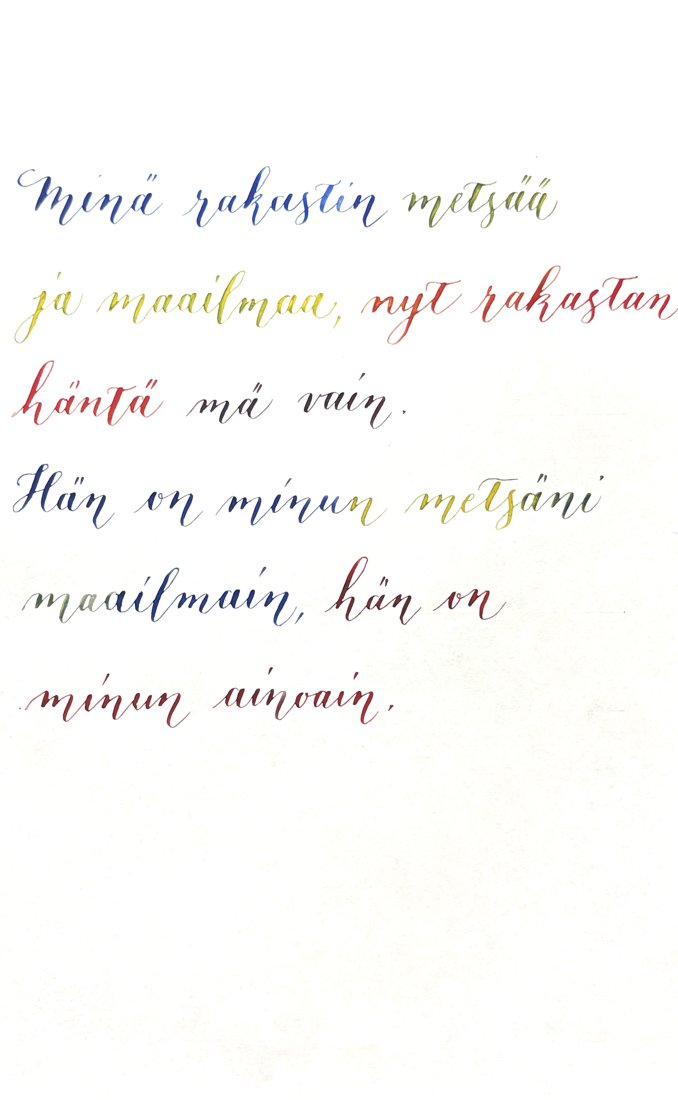 Minä rakastin metsää
ja maailmaa, nyt rakastan
häntä mä vain.
Hän on minun metsäni
maailmain, hän on
minun ainoain.